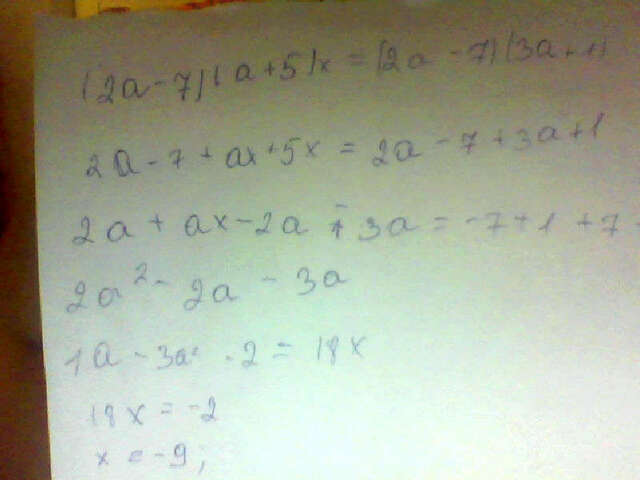 (2a-7)(a+5)x=(2a-7)(3a+1)
2a-7+ax+5x=2a-7+3a+1
2a+ax-2a-3a=-7+1+7
2a²-2a-3a
1a-3a-2=18x
18x=-2
x=-9;